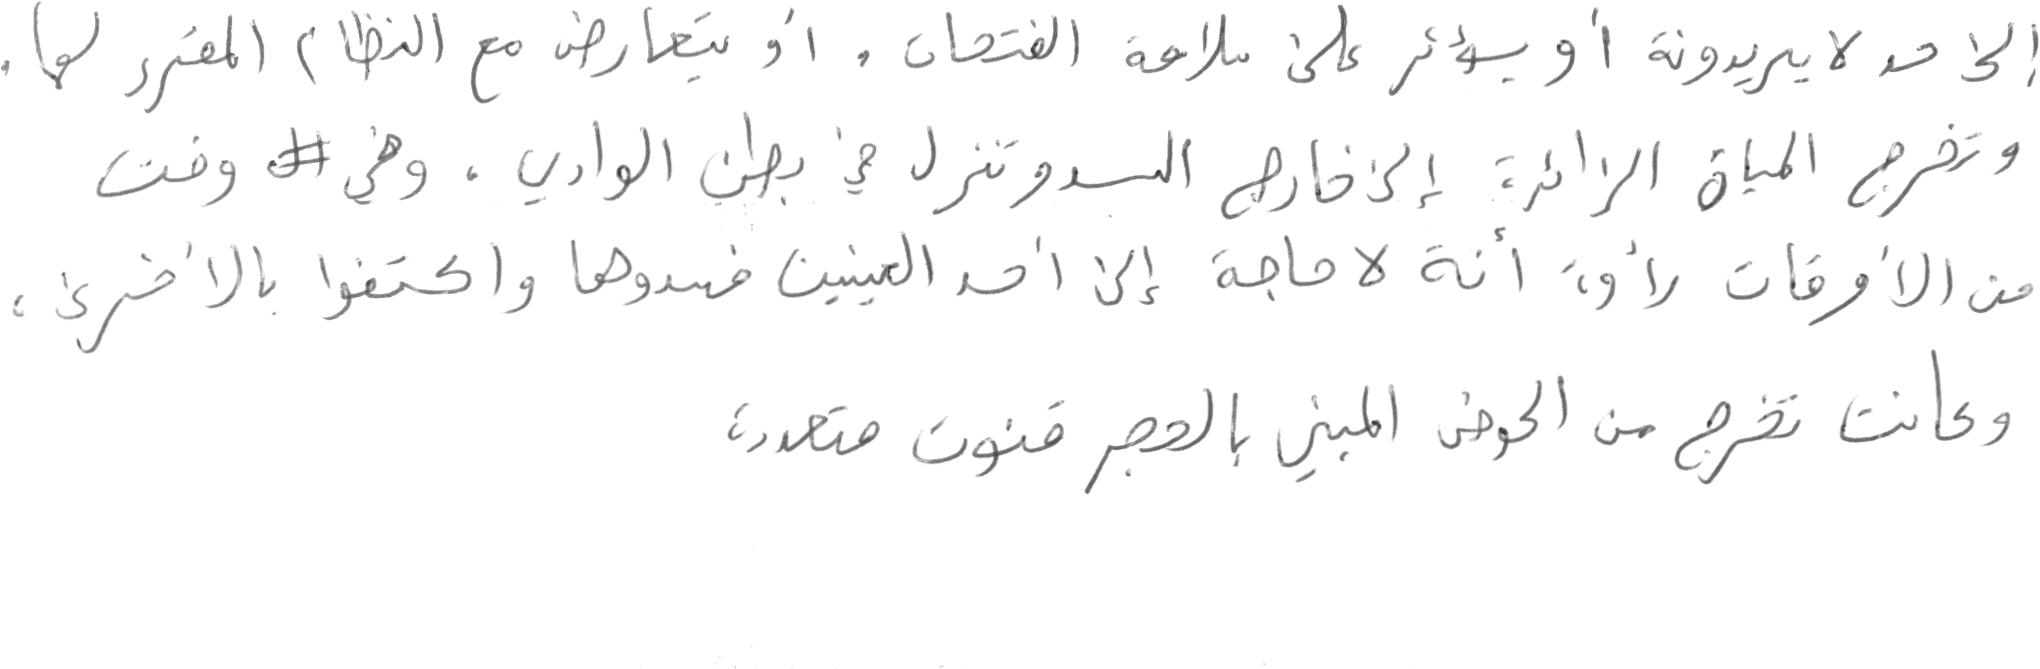 إلى حد لا يريدونة أو يؤثر على سلامة الفتحات . أو يتعارض مع النظام المقرر لها .
وتخرج المياة الزائدة إلى خارج السد وتنزل في بطن الوادي ، وفي # وقت
من الأوقات رأوا أنة لا حاجة إلى أحد العينين فسدوها واكتفوا بالأخرى ،
وكانت تخرج من الحوض المبني بالحجر قنوت متعددة